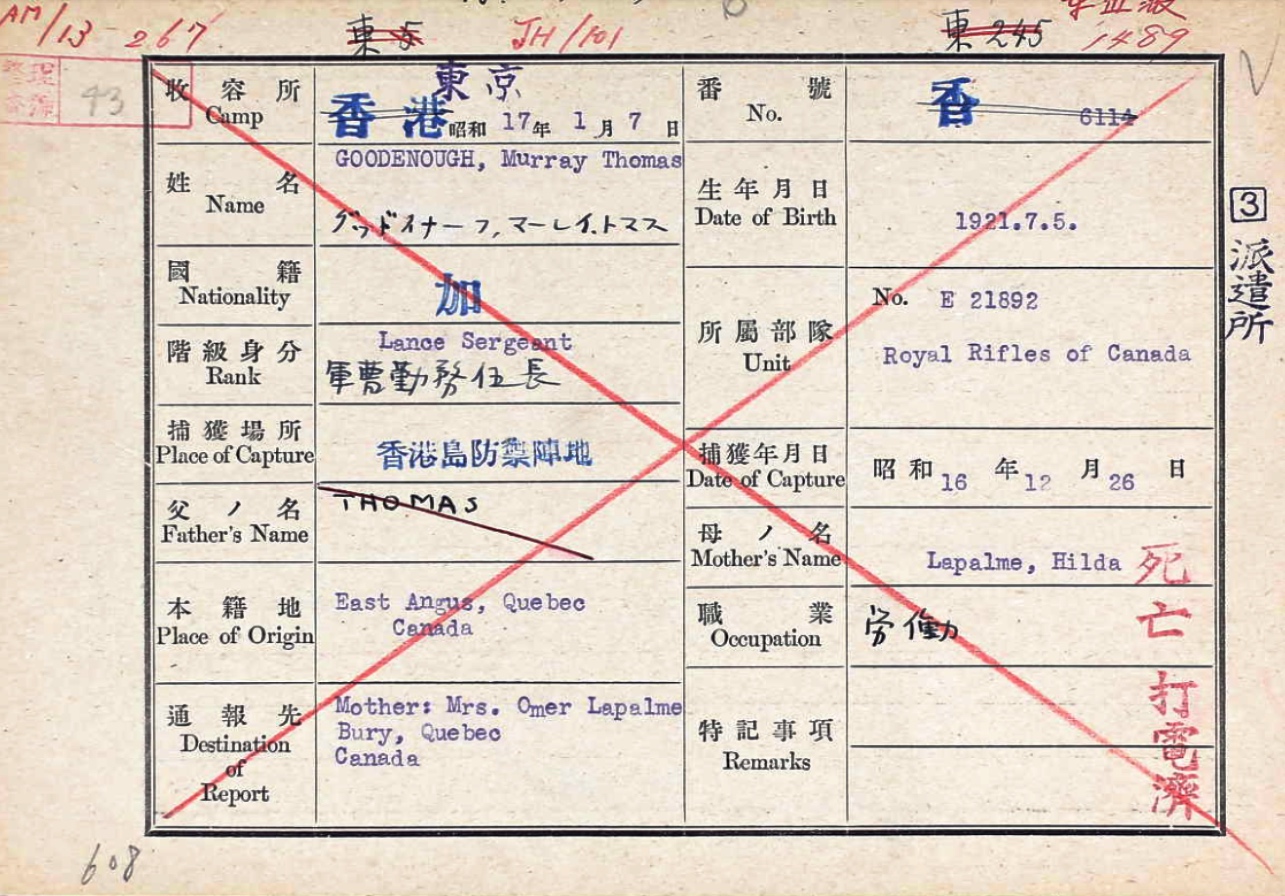 AM/13-267
東 5
JH/101
東 245
1489
整理
番號
43
收容所
Camp
東京
香港
昭和 17年 1月 7日
番號
No.
香 6114
姓名
Name
GOODENOUGH, Murray Thomas
グッドイナーフ,マーレイ.トマス
生年月日
Date of Birth
1921.7.5.
國籍
Nationality
加
階級身分
Rank
Lance Sergeant
軍曹勤務伍長
所屬部隊
Unit
No. E 21892
Royal Rifles of Canada
捕獲場所
Place of Capture
香港島防禦陣地
捕獲年月日
Date of Capture
昭和16年12月26日
父ノ名
Father's Name
THOMAS
母ノ名
Mother's Name
Lapalme, Hilda
本籍地
Place of Origin
East Angus, Quebec
Canada
職業
Occupation
労働
通報先
Destination
of
Report
Mother: Mrs. Omer Lapalme
Bury, Quebec
Canada
特記事項
Remarks
死亡打電濟
3
派遣所
608